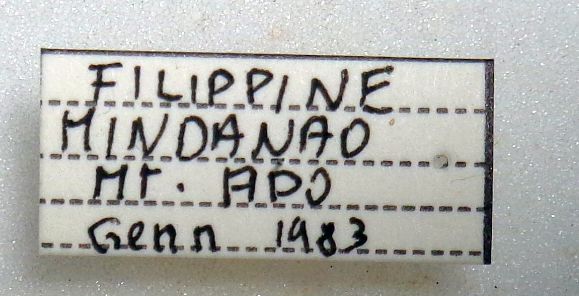 FILIPPINE
MINDANAO
Mt. APO
Genn 1983